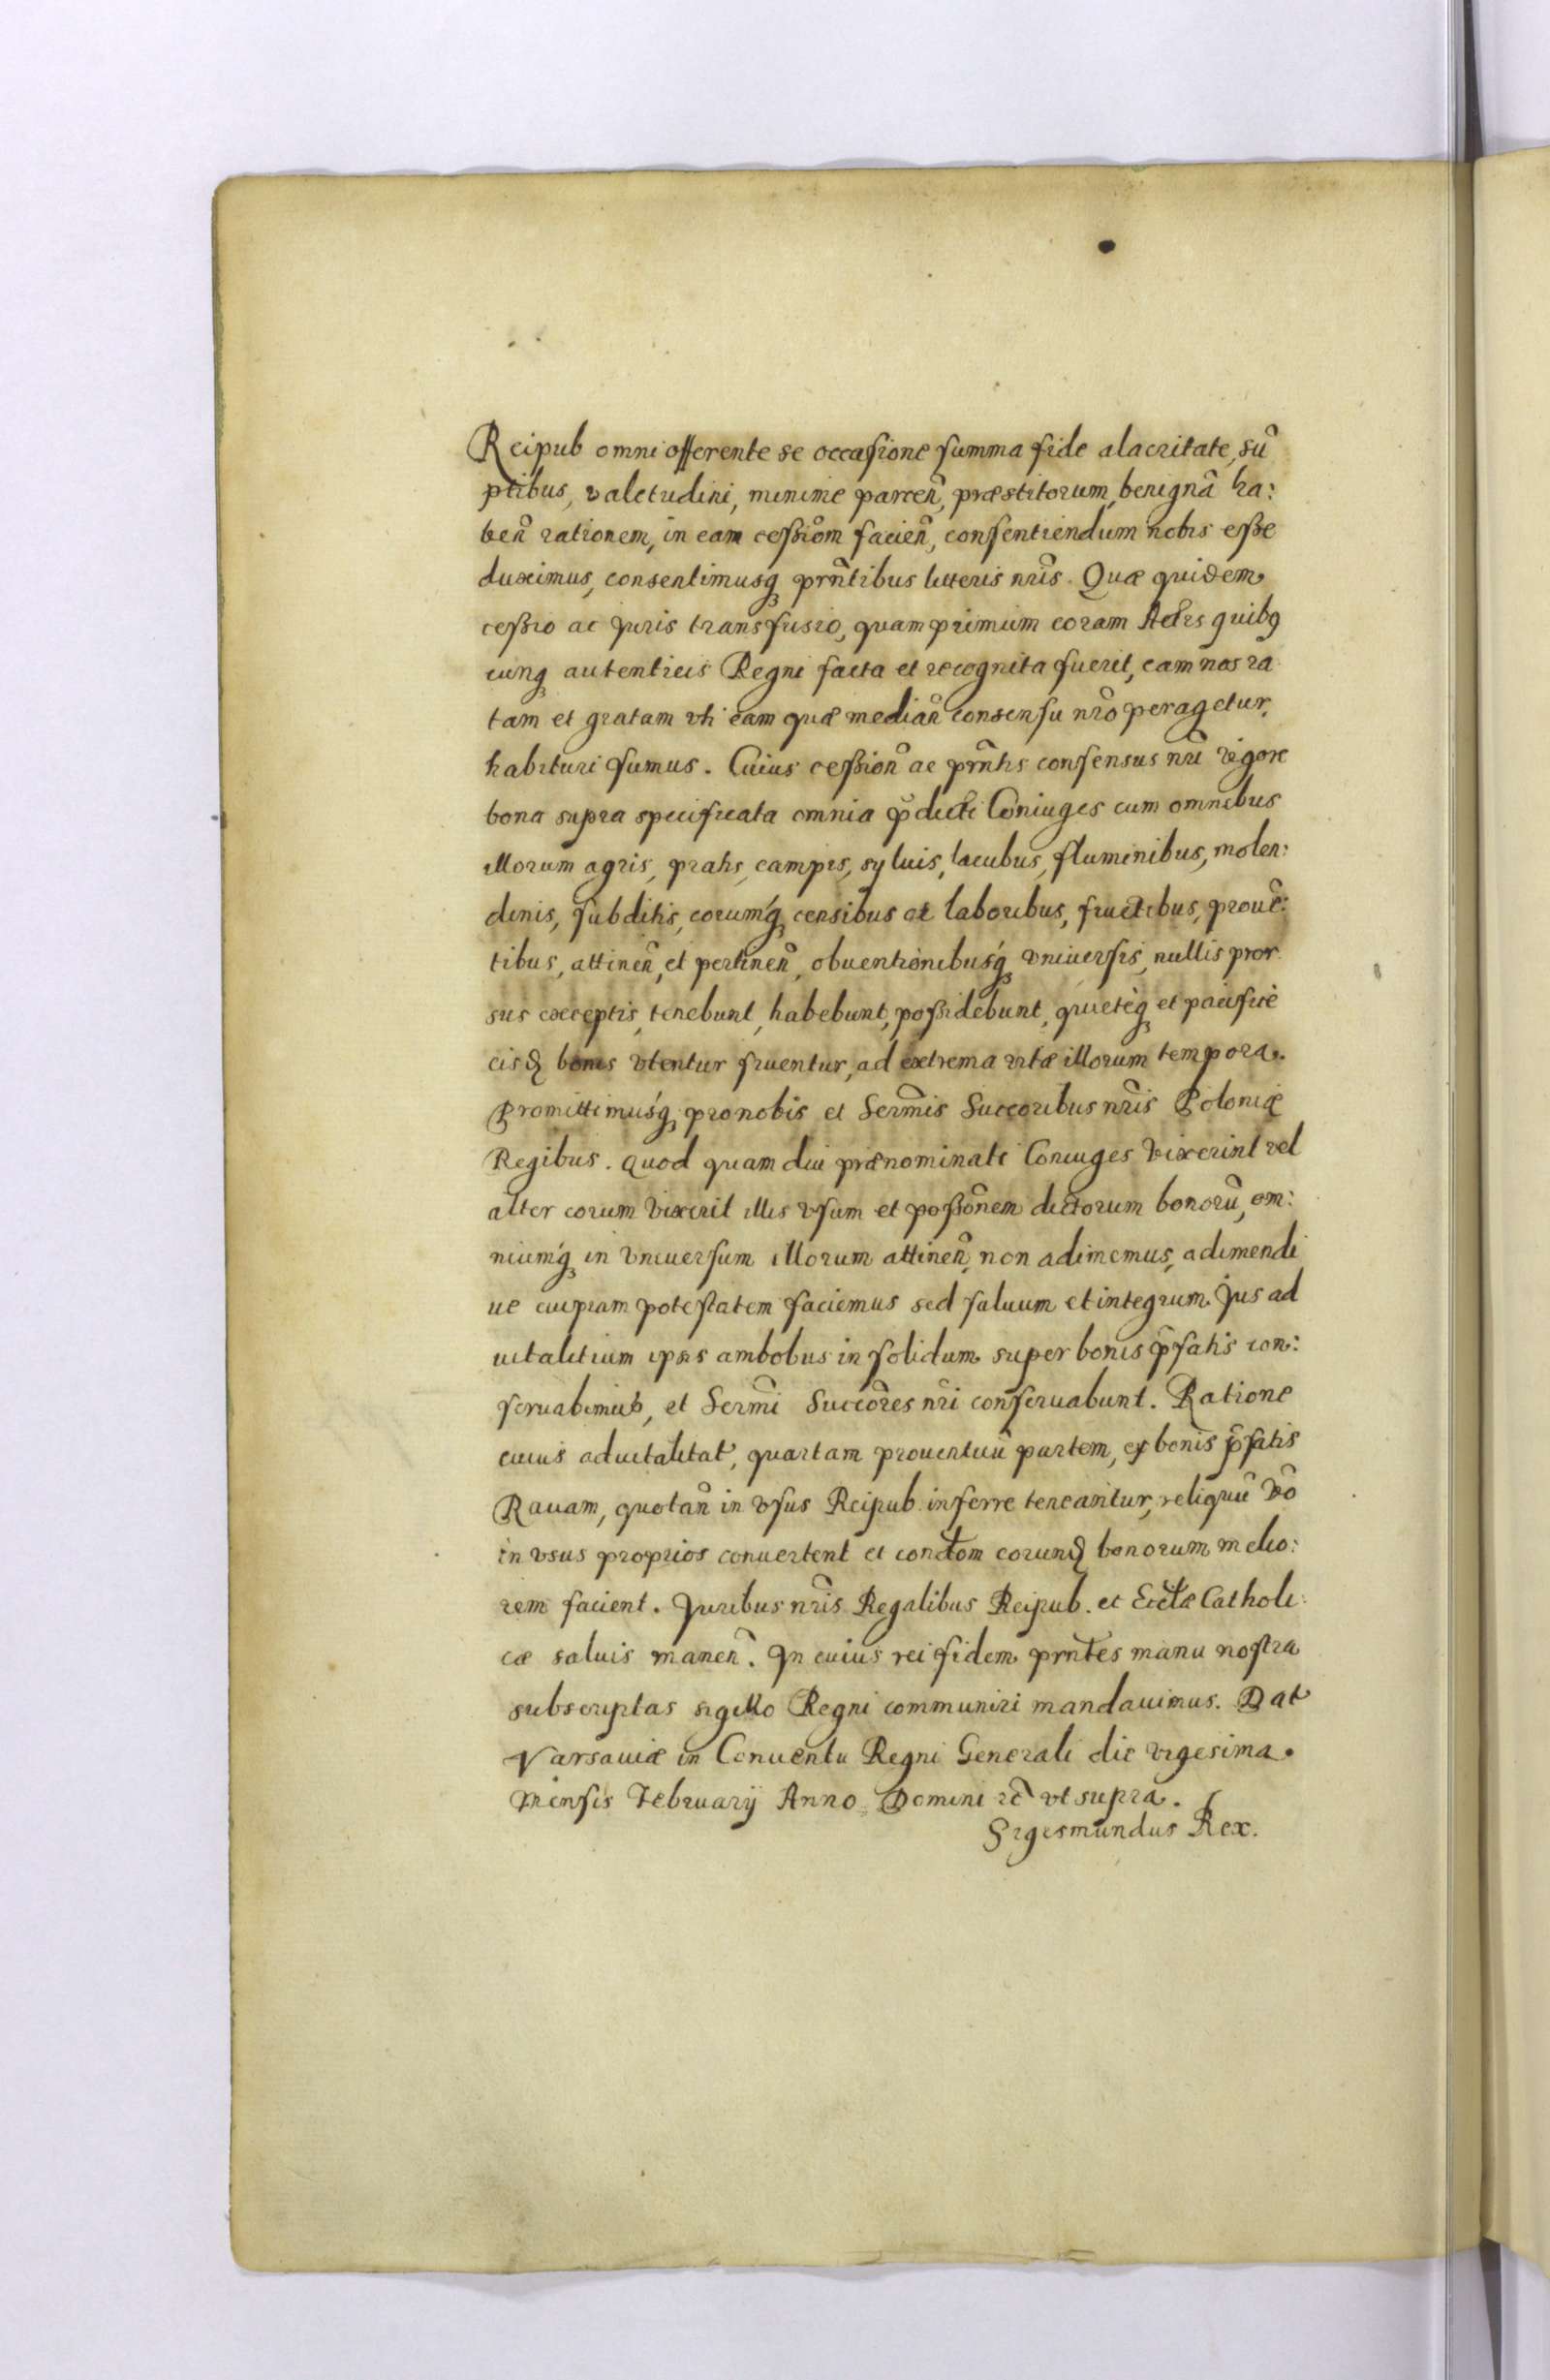 Reipub omni offerente se occasione summa fide alacritate, sũ
ptibus, valetudini, minime parceñ, præstitorum, benignã ha:
beñ rationem, in eam cessiõm facieñ, consentiendum nobis esse
duximus, consentimusq prñtibus litteris nr̃is. Quæ quidem
cessio ac Juris transfusio, quam primum coram Actis quibq
cunq autenticis Regni facta et recognita fuerit, eam nos ra
tam et gratam vti eam quæ mediañ consensu nr̃o peragetur,
habituri sumus. Cuius cessioñ ac prñtis consensus nr̃i vigore
bona supra specificata omnia p̃dicti Coniuges cum omnibus
illorum agris, pratis, campis, syluis, lacubus, fluminibus, molen:
dinis, subditis, eorumq́ censibus et laboribus, fructibus, prouẽ:
tibus, attineñ, et pertineñ, obuentionibusq́ vniuersis, nullis pror
sus exceptis, tenebunt, habebunt, possidebunt, quietèq et pacificè
eisđ bonis vtentur fruentur, ad extrema vitæ illorum tempora.
Promittimusq́ pro nobis et Serm̃is Succoribus nr̃is Poloniæ
Regibus. Quod quam diu prænominati Coniuges vixerint vel
alter eorum vixerit illis vsum et possõnem dictorum bonorũ, om:
niumq́ in vniuersum illorum attineñ, non adimemus, adimendi
ue cuipiam potestatem faciemus sed saluum et integrum Jus ad
uitalitium ipsis ambobus in solidum super bonis p̃fatis con:
seruabimus, et Serm̃i Succõres nr̃i conseruabunt. Ratione
cuius aduitalitat, quartam prouentuũ partem, ex bonis p̃fatis
Rauam, quotañ in vsus Reipub. inferre teneantur, reliquũ võ
in vsus proprios conuertent et condtom eorunđ bonorum melio:
rem facient. Juribus nr̃is Regalibus Reipub. et Ecclæ Catholi:
cæ saluis maneñ. In cuius rei fidem prñtes manu nostra
subscriptas sigillo Regni communiri mandauimus. Dat
Varsauiæ in Conuentu Regni Generali die vigesima
mensis February Anno Domini rc̃ vt supra.
Sigismundus Rex.